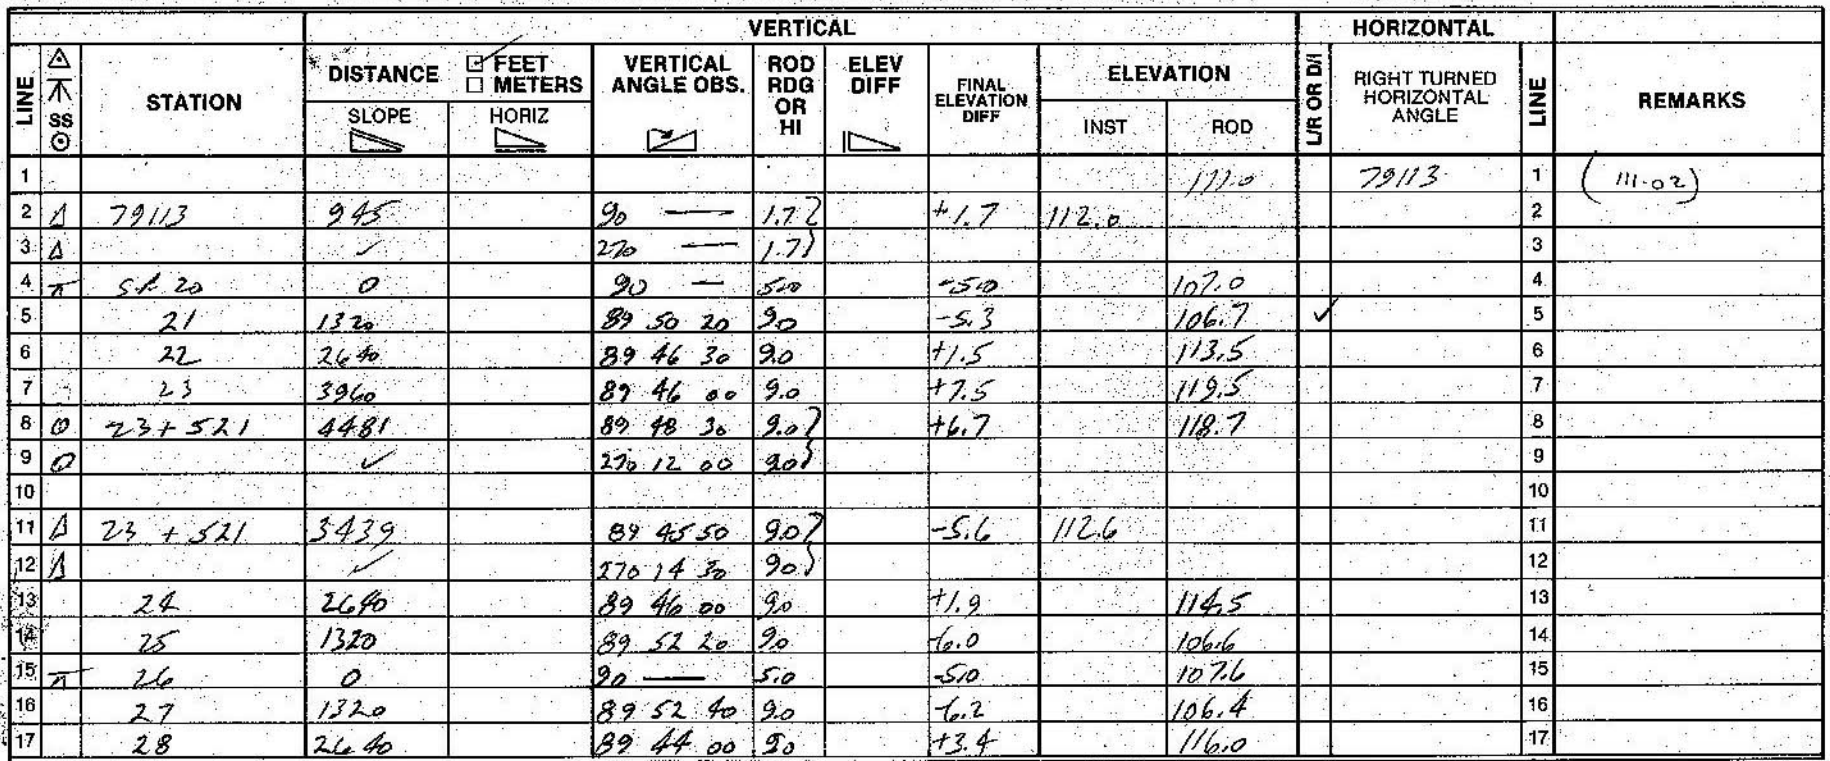 VERTICAL HORIZONTAL
LINE SS STATION DISTANCE FEET METERS SLOPE HORIZ VERTICAL ANGLE OBS. ROD RDG OR HI ELEV DIFF FINAL ELEVATION DIFF ELEVATION INST ROD L/R OR D/I RIGHT TURNED HORIZONTAL ANGLE LINE REMARKS
1 111.0 79113 1 (111.02)
2 79113 945 90 — 1.7 +1.7 112.0 2
3 270 — 1.7 3
4 0 90 — 5.0 -5.0 107.0 4
5 21 1320 89 50 20 9.0 -5.3 106.7 5
6 22 2640 89 46 30 9.0 +1.5 113.5 6
7 23 3960 89 46 00 9.0 +7.5 119.5 7
8 23+521 4481 89 48 30 9.0 +6.7 118.7 8
9 270 12 00 9.0 9
10 10
11 23 + 521 3439 89 45 50 9.0 -5.6 112.6 11
12 270 14 30 9.0 12
13 24 2640 89 46 00 9.0 +1.9 114.5 13
14 25 1320 89 52 20 9.0 -6.0 106.6 14
15 26 0 90 — 5.0 -5.0 107.6 15
16 27 1320 89 52 40 9.0 -6.2 106.4 16
17 28 2640 89 44 00 9.0 +3.4 116.0 17